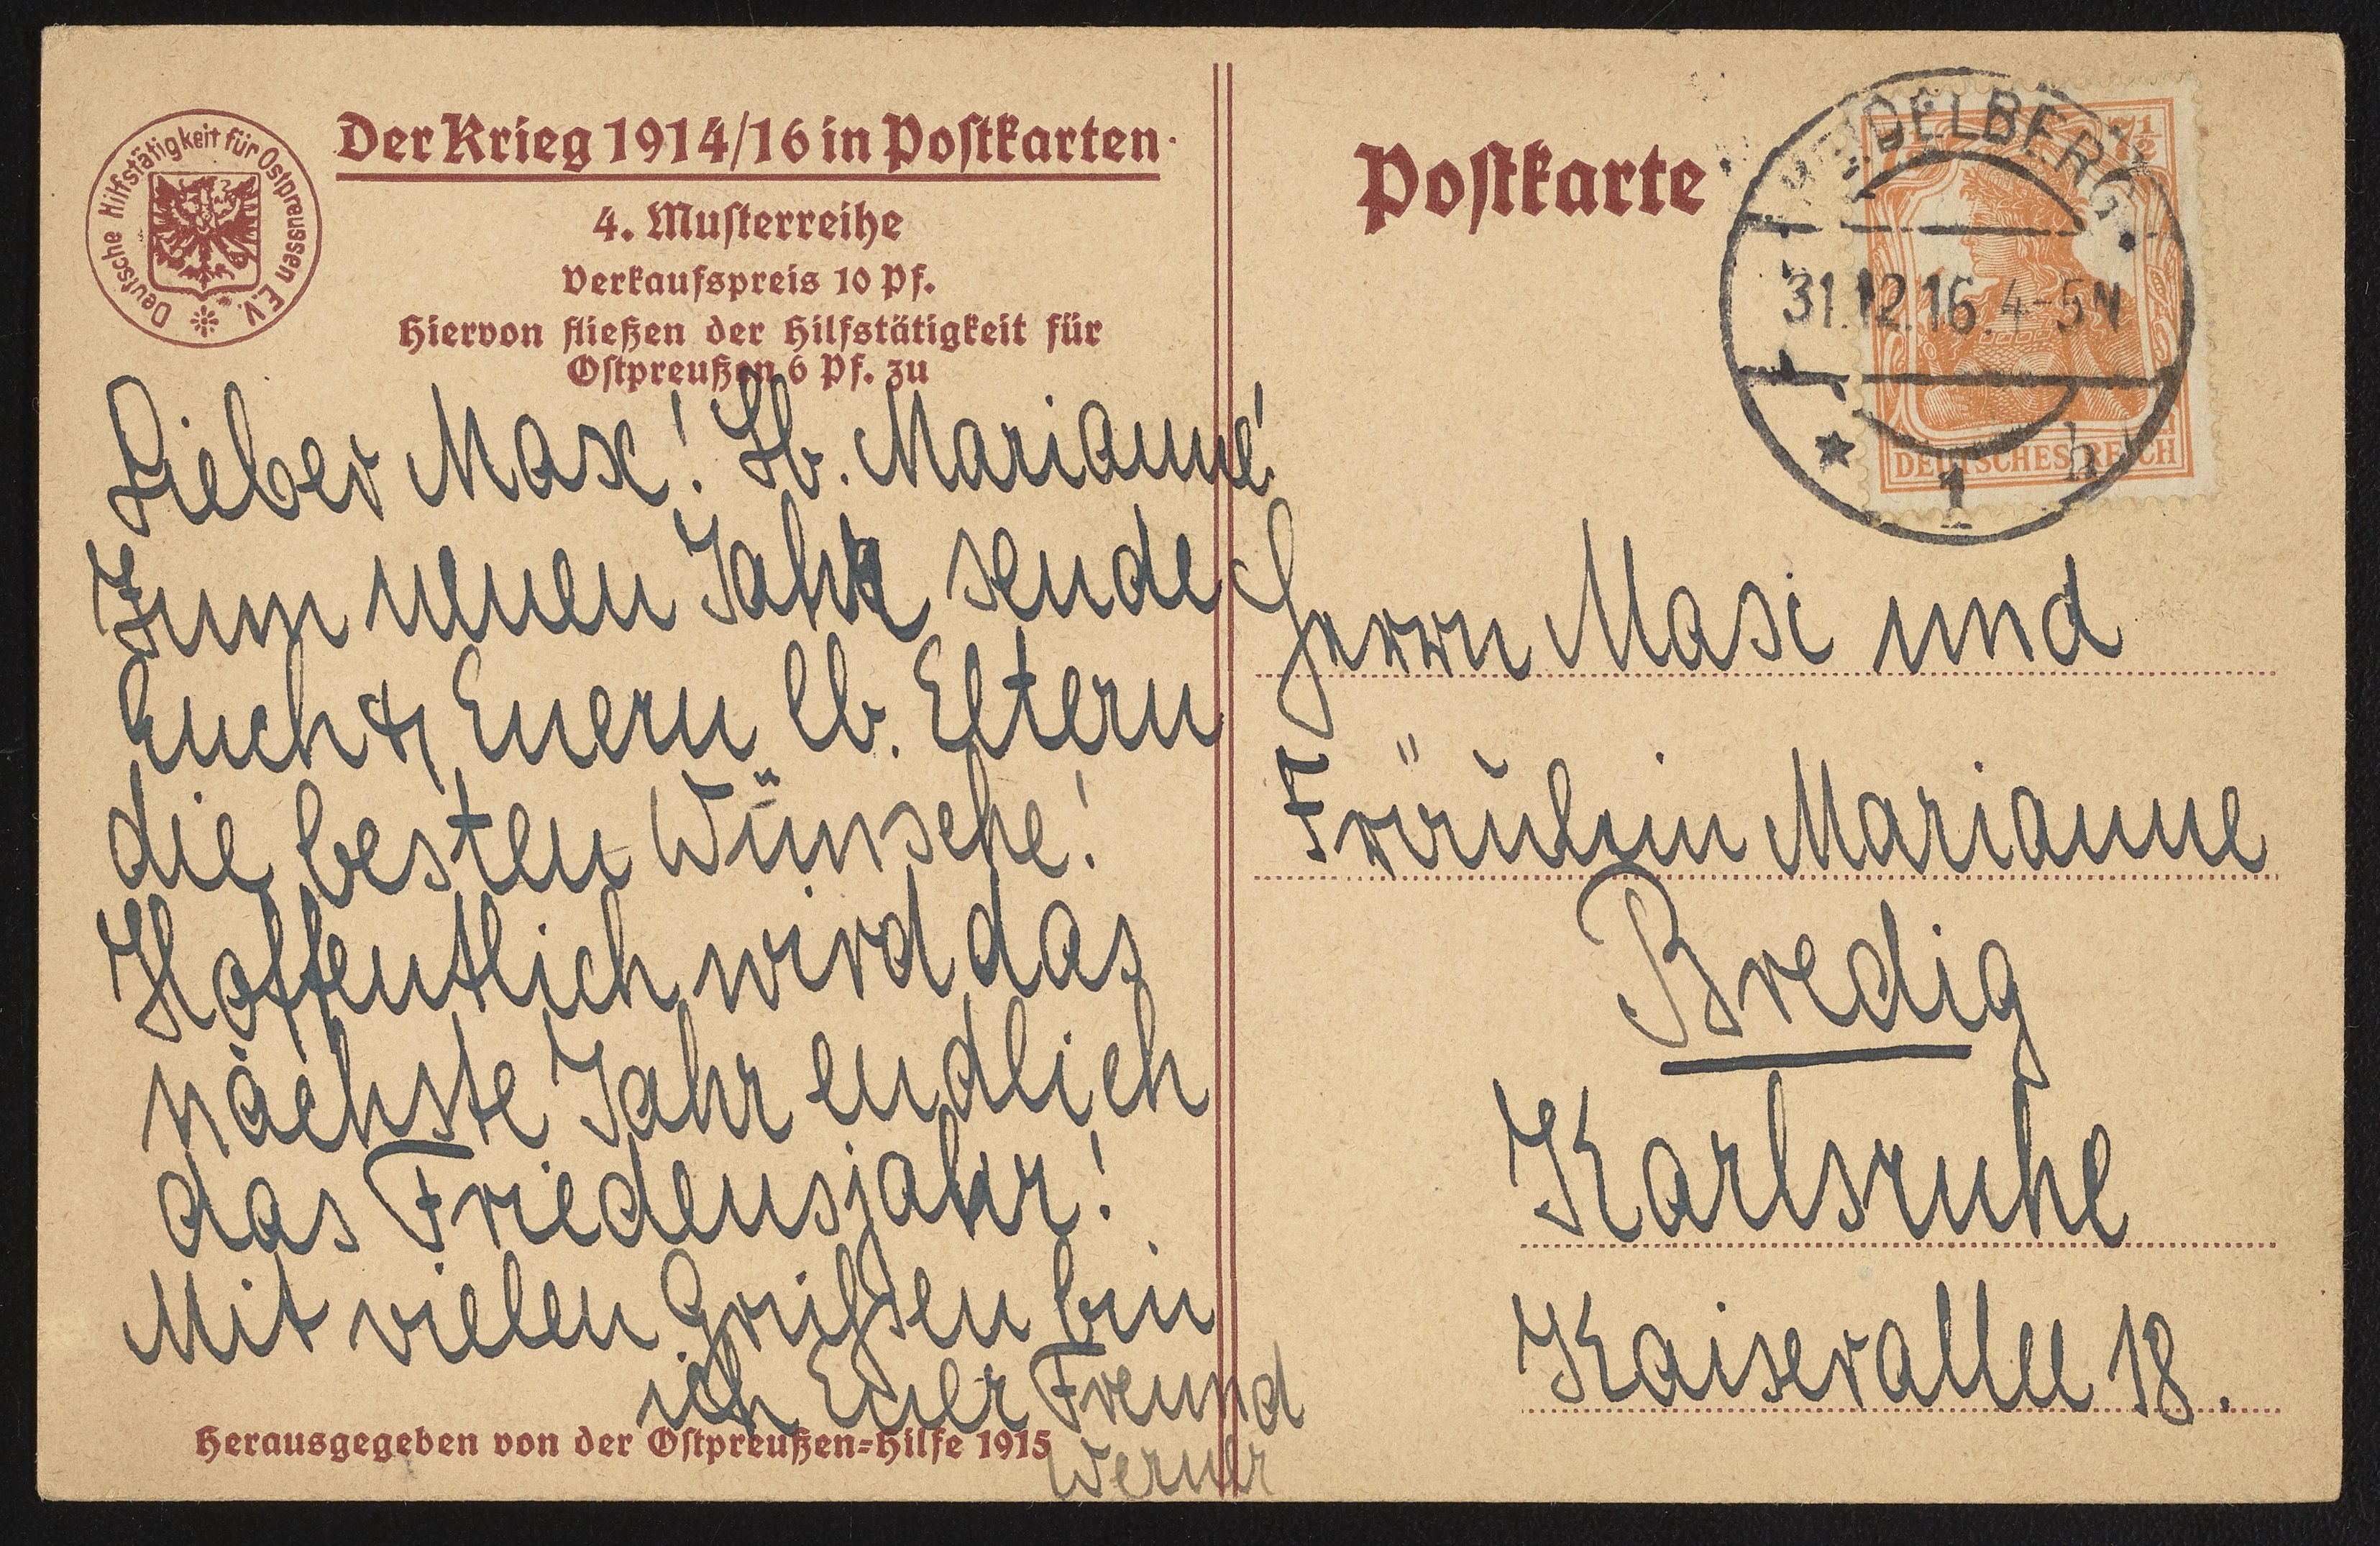 Deutsche Hilfstätigkeit für Ostpreussen E.V.
Der Krieg 1914/16 in Postkarten
4. Musterreihe
Verkaufspreis 10 Pf.
Hiervon fließen der Hilfstätigkeit für
Ostpreußen 6 Pf. zu
Lieber Max! Lb. Marianne!
Zum neuen Jahr sende
Euch & Euern lb. Eltern
die besten Wünsche!
Hoffentlich wird das
nächste Jahr endlich
das Friedensjahr!
Mit vielen Grüßen bin
ich Euer Freund
Werner
Herausgegeben von der Ostpreußen-Hilfe 1915
Postkarte
HEIDELBERG
31.12.16.4-5N
* 1 h
7½
DEUTSCHES REICH
Herrn Max und
Fräulein Marianne
Bredig
Karlsruhe
Kaiserallee 18.